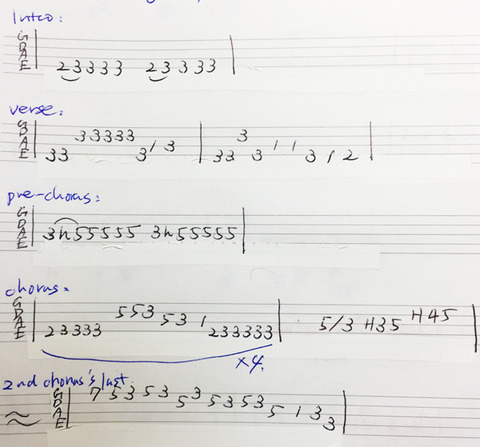 Intro:
G
D
A
E
2 3 3 3 3 2 3 3 3 3
verse:
G
D
A
E
33 33333 3 1 3 33 3 3 1 1 3 1 2
pre-chorus:
G
D
A
E
3h55555 3h55555
chorus:
G
D
A
E
23333 553 53 1 233333 5/3 H35 H45
×4.
2nd chorus's last
G
D
A
E
7 5 3 5 3 5 3 5 3 5 3 5 1 3 3